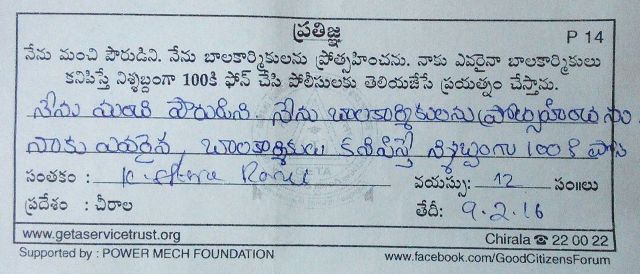 ప్రతిజ్ఞ
P 14
నేను మంచి పౌరుడిని. నేను బాలకార్మికులను ప్రోత్సహించను. నాకు ఎవరైనా బాలకార్మికులు
కనిపిస్తే నిశ్శబ్దంగా 100కి ఫోన్ చేసి పోలీసులకు తెలియజేసే ప్రయత్నం చేస్తాను.
నేను మంచి పౌరుడిని. నేను బాలకార్మికులను
నాకు ఎవరైన, బాలకార్మికులు కనిపిస్తే 100కి
సంతకం : వయస్సు: 12 సం॥లు
ప్రదేశం : చీరాల తేదీ: 9.2.16
www.getaservicetrust.org Chirala ☎ 22 00 22
Supported by : POWER MECH FOUNDATION www.facebook.com/GoodCitizensForum